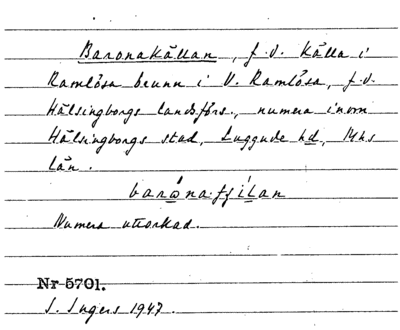 Baronakällan, f.d. källa i
Ramlösa brunn i V. Ramlösa, f.d.
Hälsingborgs landsförs., numera inom
Hälsingborgs stad, Luggude hd, Mhs
län.
Numera uttorkad.
Nr 5701.
I. Ingers 1947.